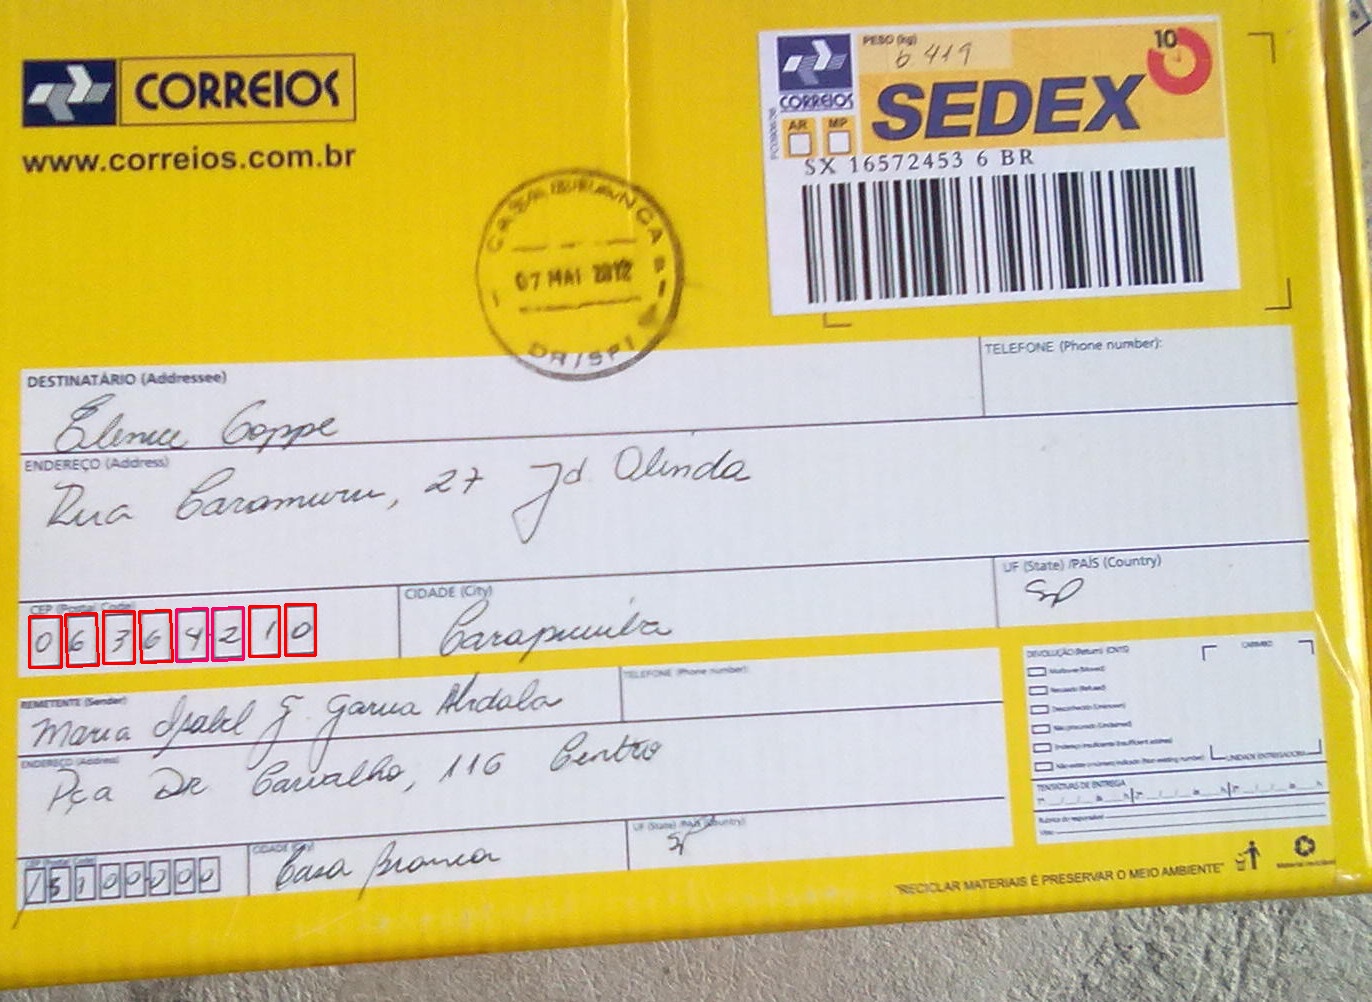 CORREIOS
www.correios.com.br
CORREIOS
PESO (kg)
6 419
SEDEX 10
AR MP
SX 16572453 6 BR
07 MAI 2012
DR/SPI
DESTINATÁRIO (Addressee)
TELEFONE (Phone number):
Elenice Coppe
ENDEREÇO (Address)
Rua Caramuru, 27 Jd Olinda
CEP (Postal Code)
06364210
CIDADE (City)
Carapicuíba
UF (State) /PAÍS (Country)
SP
REMETENTE (Sender)
TELEFONE (Phone number):
Maria Isabel G. Garcia Abdala
ENDEREÇO (Address)
Pça Dr Carvalho, 116 Centro
CEP (Postal Code)
CIDADE (City)
Casa Branca
UF (State) /PAÍS (Country)
SP
DEVOLUÇÃO (Return) (CN15)
CARIMBO
Mudou-se (Moved)
Recusado (Refused)
Desconhecido (Unknown)
Não procurado (Unclaimed)
Endereço insuficiente (Insufficient address)
Não existe o número indicado (Non-existing number)
UNIDADE ENTREGADORA
TENTATIVAS DE ENTREGA
Rubrica do responsável
Visto
"RECICLAR MATERIAIS É PRESERVAR O MEIO AMBIENTE"